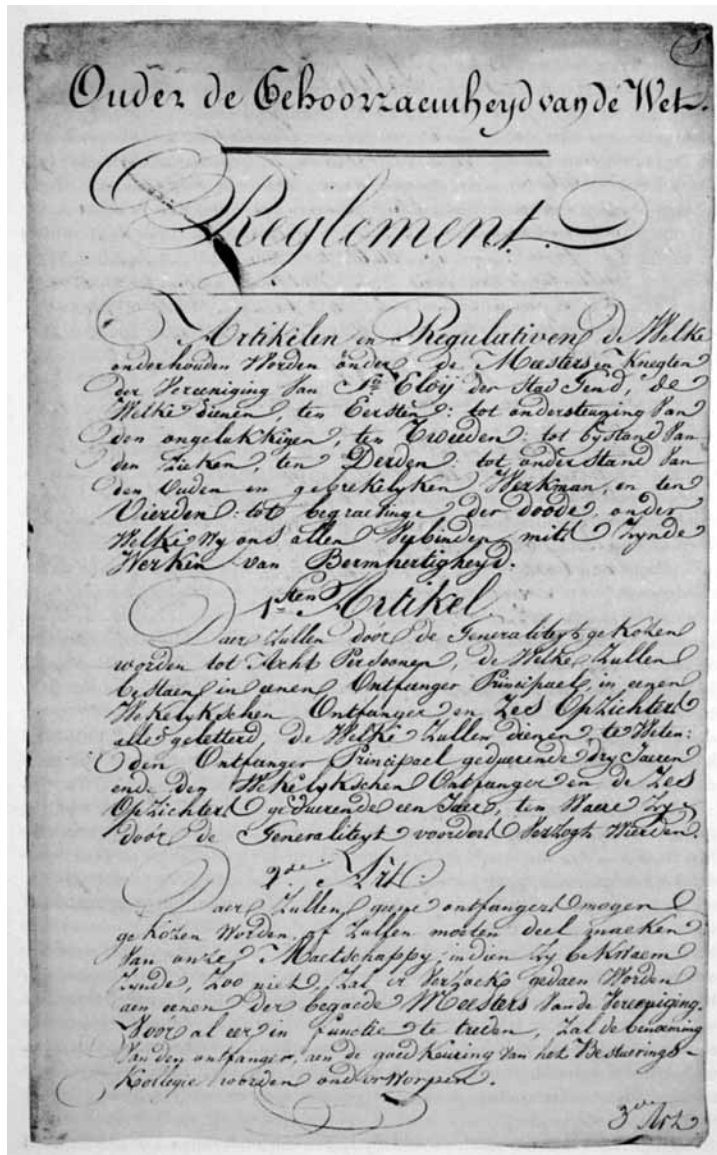 Onder de Gehoorzaemheyd van de Wet.
Reglement.
Artikelen en Regulativen de Welke
onderhouden Worden onder de Meesters en Knegten
der Vereeniging Van Ste Eloij der Stad Gend, de
Welke dienen, ten Eersten: tot ondersteuning Van
den ongelukkigen, ten Tweeden: tot bystand Van
den Zieken, ten Derden: tot onderstand Van
den Ouden en gebrekelyken Werkman, en ten
Vierden: tot begraevinge der doode, onder
Welke Wy ons allen Verbinden mits Zynde
Werken van Bermhertigheyd.
1sten Artikel
Daer Zullen door de Generaliteyt gekozen
worden tot Acht Persoonen, de Welke Zullen
bestaen in eenen Ontfanger Principael, in eenen
Wekelykschen Ontfanger en Zes Opzichters
alle geletterd de Welke Zullen dienen, te Weten:
den Ontfanger Principael geduerende dry Jaeren
ende den Wekelykschen Ontfanger en de Zes
Opzichters geduerende een Jaer, ten Waere Zy
door de Generaliteyt voorders Verzogt Wierden.
2de Art.
Daer Zullen geene ontfangers mogen
gekozen Worden of Zullen moeten deel maeken
Van onze Maetschappy, indien Zy bekwaem
Zynde, Zoo niet, Zal er Verzoek gedaen Worden
aen eenen der begoede Meesters Van de Vereeniging.
Voor al eer in functie te treden, Zal de benoeming
Van den ontfanger, aen de goedkeuring Van het Bestuerings-
Kollegie worden onderworpen.
3de Art